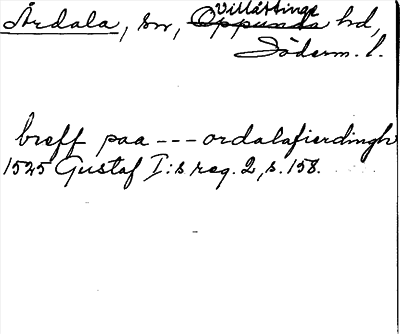 Årdala, sn, Villåttinge hd,
Söderm. l.
breff paa --- ordalafierdingh
1525 Gustaf I:s reg. 2, s. 158.